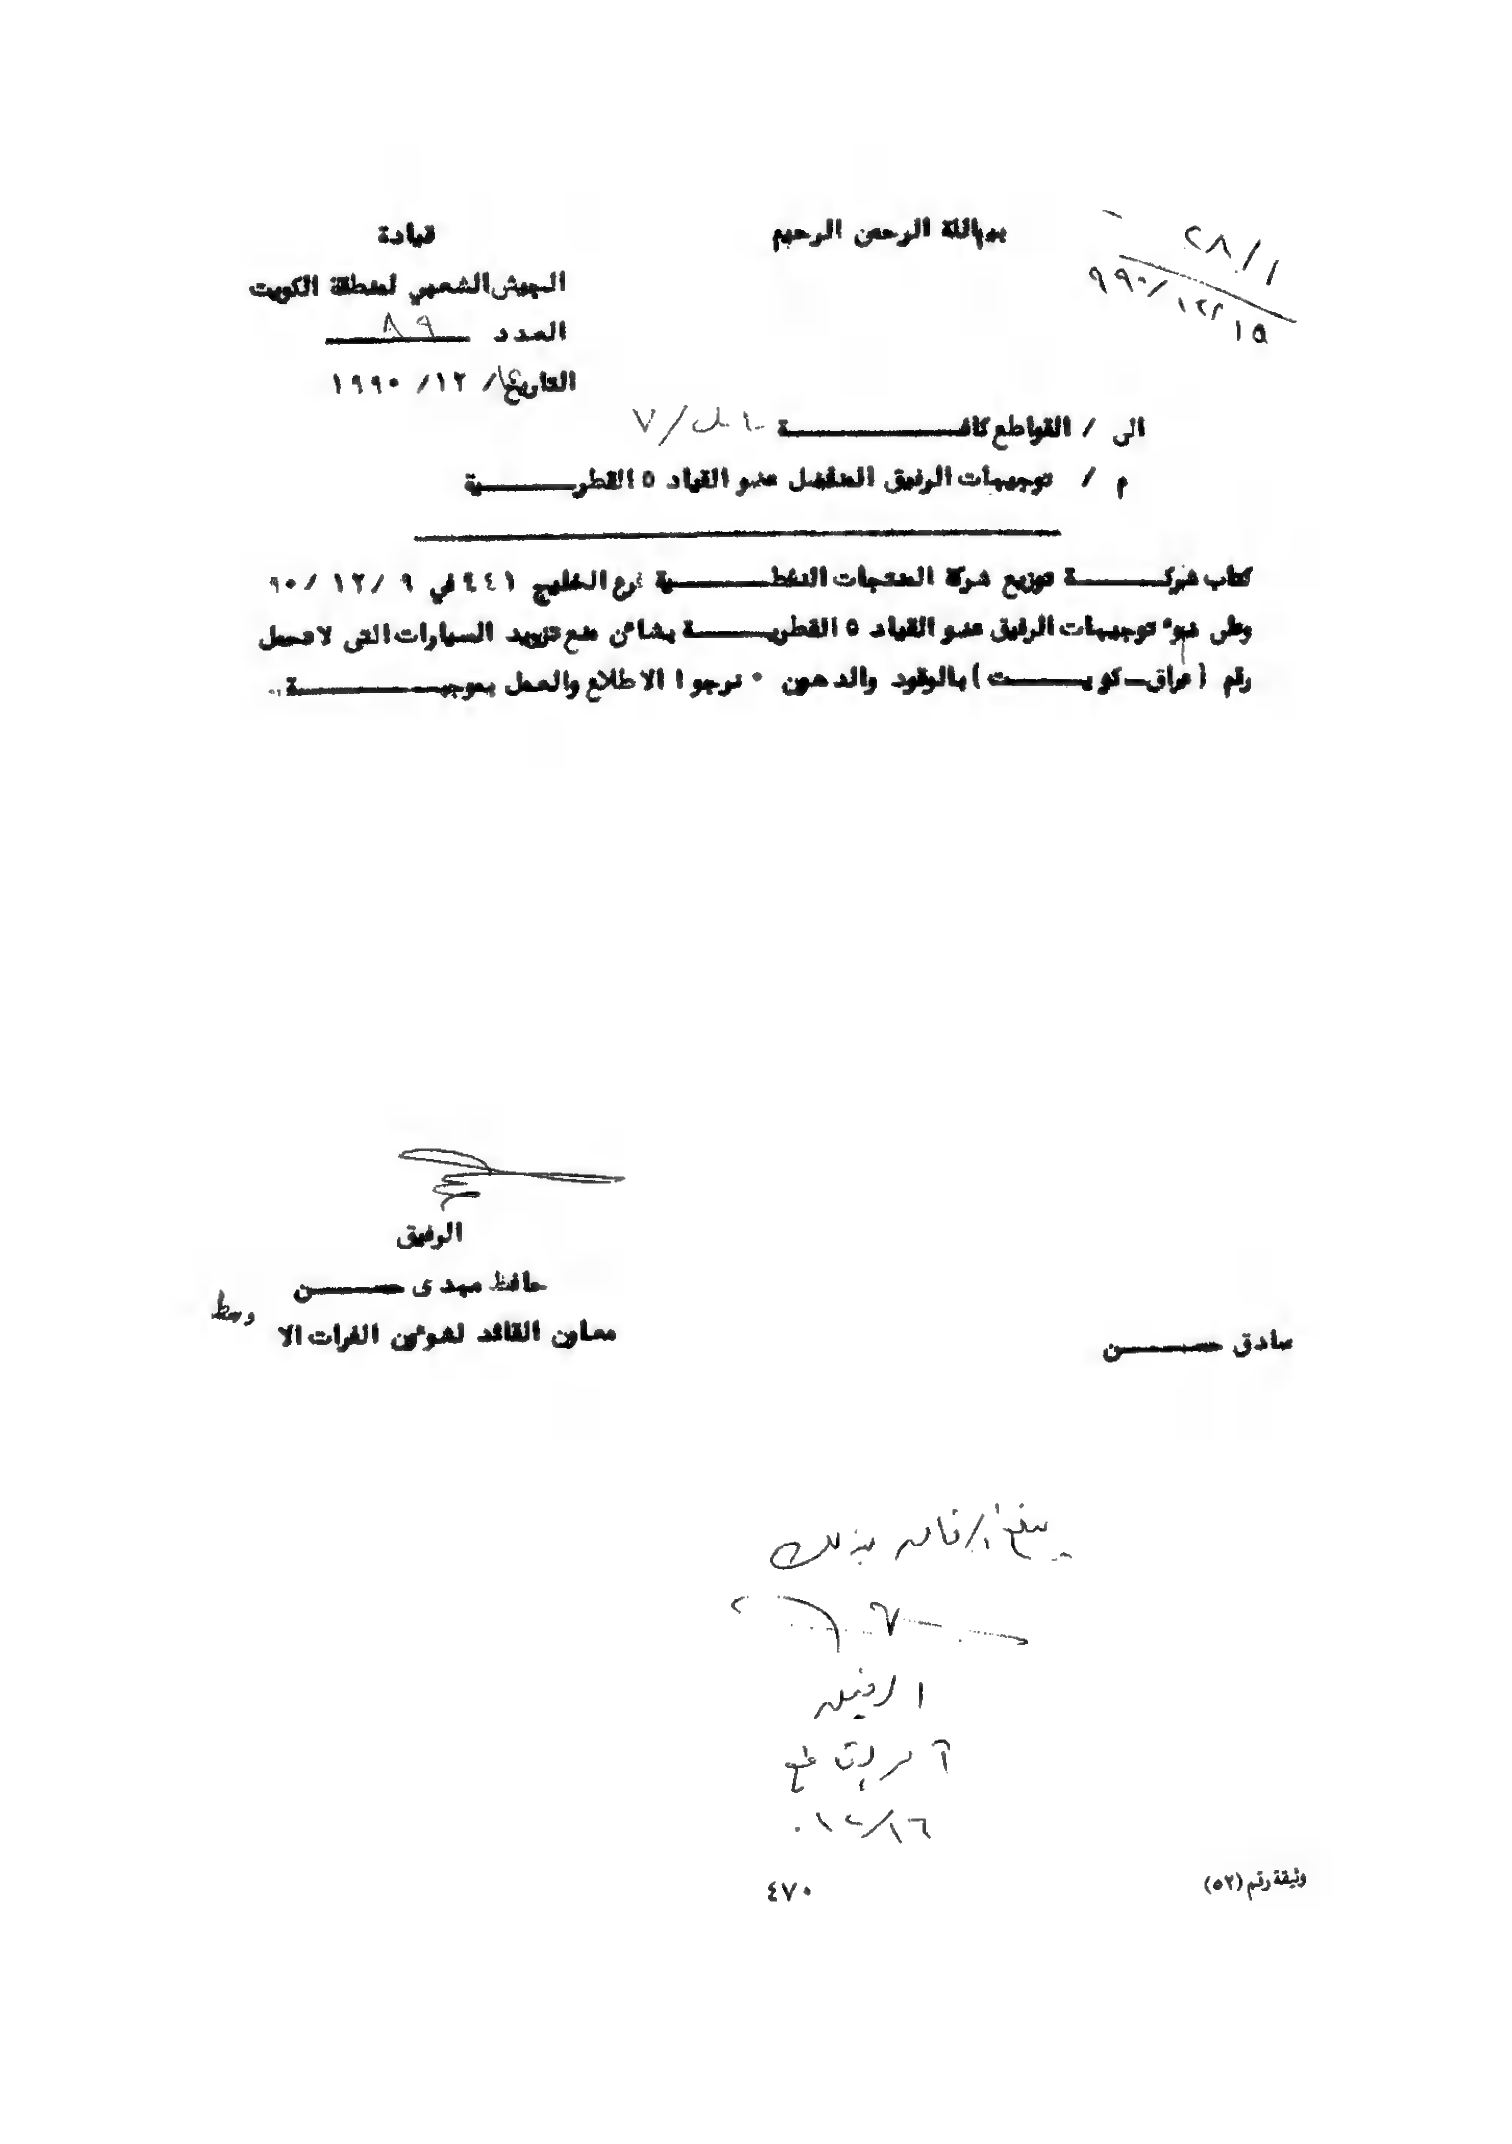 بسم الله الرحمن الرحيم
قيادة
الجيش الشعبي لمنطقة الكويت
العدد ٨٩
التاريخ / ١٢/ ١٩٩٠
٢٨/١
١٥ ٩٩٠/١٢
الى / القواطع كافـــــــــة
م / توجيهات الرفيق المناضل عضو القيادة القطريـــــــة
كتاب شركـــــــة توزيع شركة المنتجات النفطـــــــية فرع الخليج ٤٤١ في ٩ /١٢/ ٩٠
وعلى ضوء توجيهات الرفيق عضو القيادة القطريـــــــة بشأن منع تزويد السيارات التي لا تحمل
رقم (عراق ـ كويـــــــت) بالوقود والدهون ٠ نرجوا الاطلاع والعمل بموجبـــــــة ..
الرفيق
حافظ مهدى حســـــــن
معاون القائد لشوئون الفرات الاوسط
صادق حســـــــن
بذلك
الرفيق
١٢/١٦
وثيقة رقم (٥٢)
٤٧٠